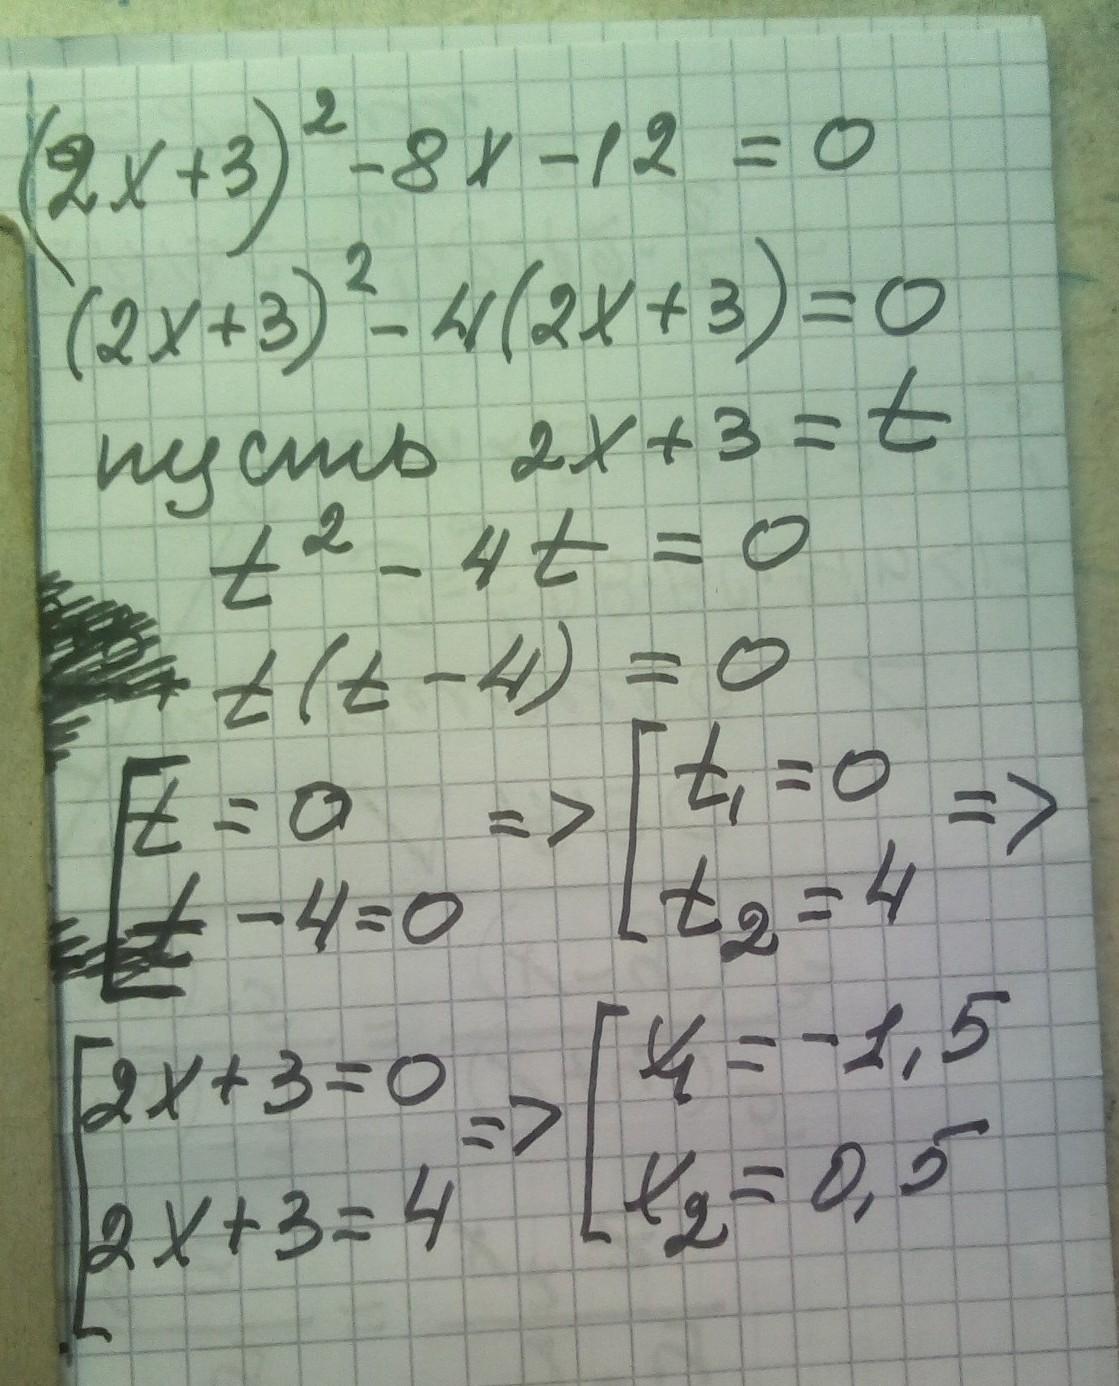 (2x+3)² -8x -12 = 0
(2x+3)² - 4(2x+3) = 0
пусть 2x+3 = t
t² - 4t = 0
t(t-4) = 0
[t = 0 => [t₁ = 0 =>
t - 4 = 0 t₂ = 4
[2x+3 = 0 => [x₁ = -1,5
2x+3 = 4 x₂ = 0,5